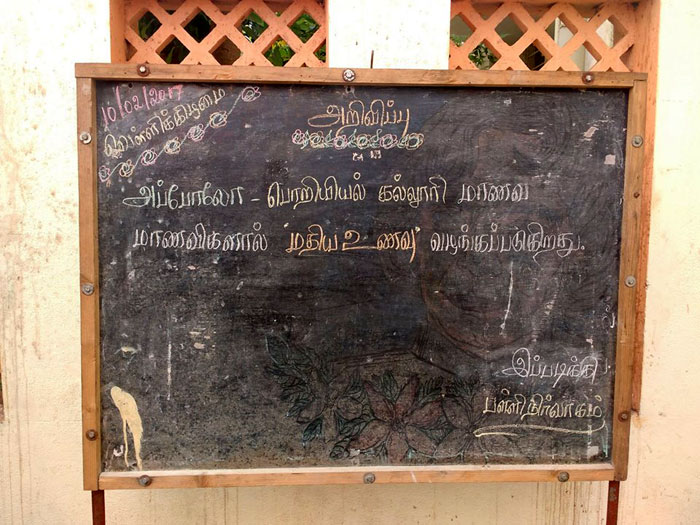 10/02/2017
வெள்ளிக்கிழமை
அறிவிப்பு
அப்போலோ - பொறியியல் கல்லூரி மாணவ
மாணவிகளால் 'மதிய உணவு' வழங்கப்படுகிறது.
இப்படிக்கு
பள்ளி நிர்வாகம்